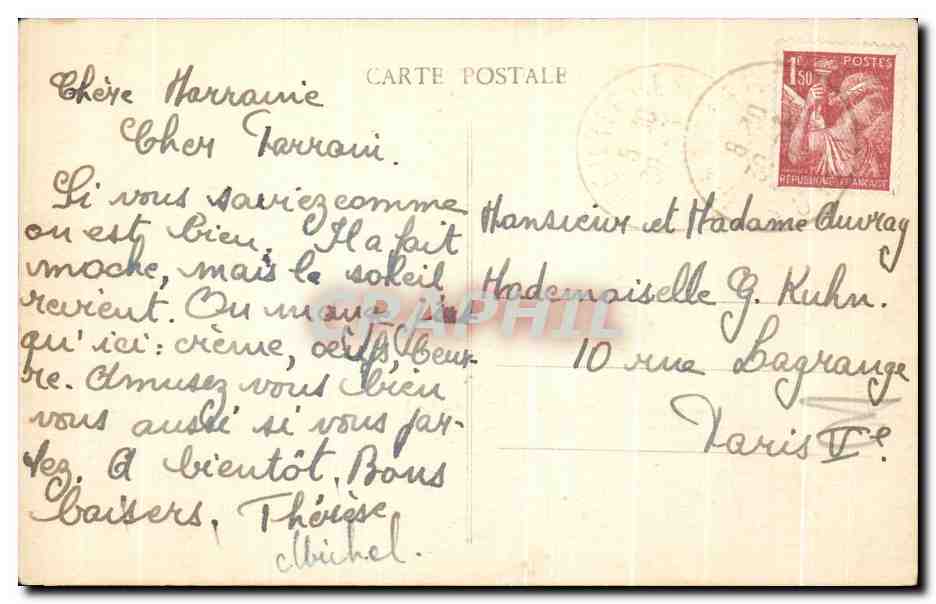 CARTE POSTALE
1F50
POSTES
RÉPUBLIQUE FRANÇAISE
Chère Marraine
Cher Parrain.
Si vous saviez comme
on est bien. Il a fait
moche, mais le soleil
revient. On mange
qu'ici : crème, oeufs, beur-
re. Amusez vous bien
vous aussi si vous par-
tez. A bientôt. Bons
baisers. Thérèse
Michel.
Monsieur et Madame Auvray
Mademoiselle G. Kuhn.
10 rue Lagrange
Paris Ve.
CPARHIL